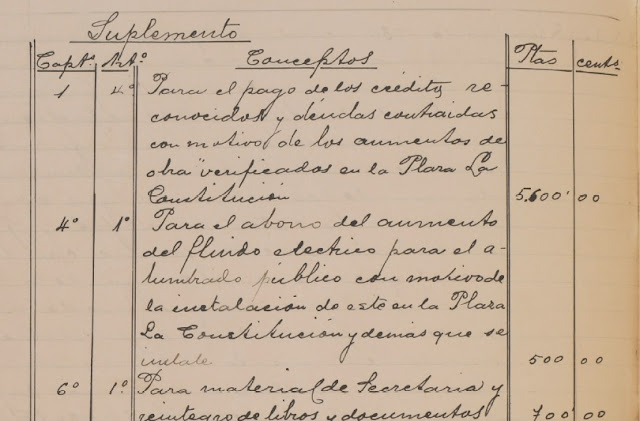 Suplemento
Captº Artº Conceptos Ptas cents
1 4º Para el pago de los créditos re-
conocidos y deudas contraidas
con motivo de los aumentos de
obra verificados en la Plaza La
Constitución 5.600' 00
4º 1º Para el abono del aumento
del fluido electrico para el a-
lumbrado público con motivo de
la instalación de este en la Plaza
La Constitución y demas que se
instale 500 00
6º 1º Para material de Secretaria y
reintegro de libros y documentos 700' 00